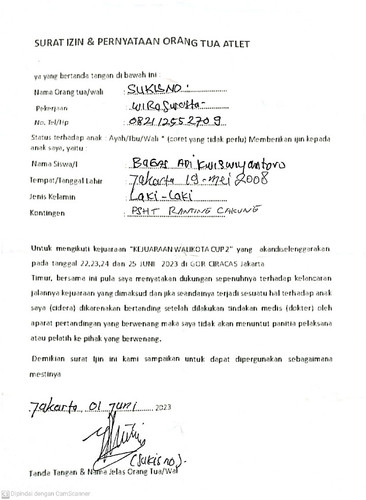 SURAT IZIN & PERNYATAAN ORANG TUA ATLET
ya yang bertanda tangan di bawah ini :
Nama Orang tua/wali : SUKISNO.
Pekerjaan : WIRASWASTA
No. Tel/Hp : 082112552709
Status terhadap anak : Ayah/Ibu/Wali * (coret yang tidak perlu) Memberikan ijin kepada
anak saya, yaitu :
Nama Siswa/I : BAGAS ADI KWISWIYANTORO
Tempat/Tanggal Lahir : Jakarta 19-mei 2008
Jenis Kelamin : LAKI-LAKI
Kontingen : PSHT RANTING CAKUNG
Untuk mengikuti kejuaraan "KEJUARAAN WALIKOTA CUP 2" yang akandiselenggarakan
pada tanggal 22,23,24 dan 25 JUNI 2023 di GOR CIRACAS Jakarta
Timur, bersama ini pula saya menyatakan dukungan sepenuhnya terhadap kelancaran
jalannya kejuaraan yang dimaksud dan jika seandainya terjadi sesuatu hal terhadap anak
saya (cidera) dikarenakan bertanding setelah dilakukan tindakan medis (dokter) oleh
aparat pertandingan yang berwenang maka saya tidak akan menuntut panitia pelaksana
atau pelatih ke pihak yang berwenang.
Demikian surat Ijin ini kami sampaikan untuk dapat dipergunakan sebagaimana
mestinya
Jakarta 01 Juni 2023
(Sukisno).
Tanda Tangan & Nama Jelas Orang Tua/Wali
Dipindai dengan CamScanner